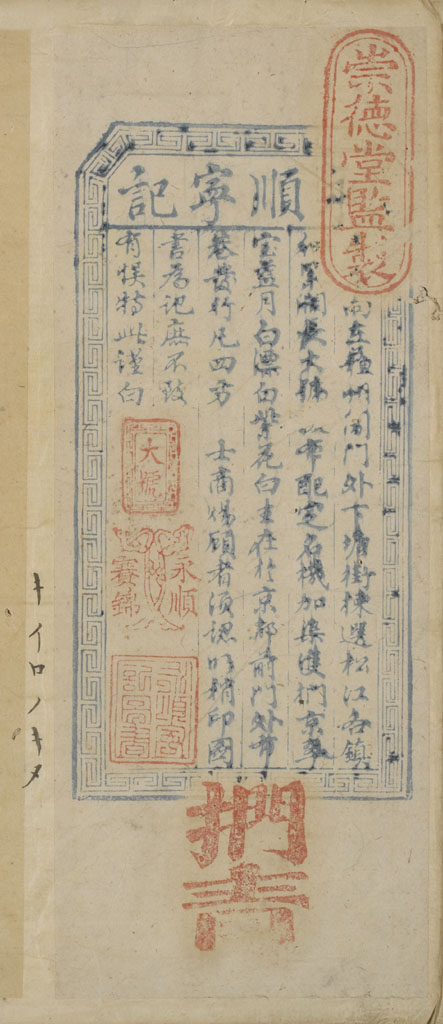 崇德堂監製
順寧記
向在蘇州閶門外下塘街揀選松江各鎮
闊長大號 以布配定名機加染雙捫京翠
宝藍月白漂白紫花白 在於京都前門外布
巷發行凡四方 士商賜顧者須認明稍印圖
書為記庶不致
有悮特此謹白
大號
永順
賽錦
捫青
キイロノキメ